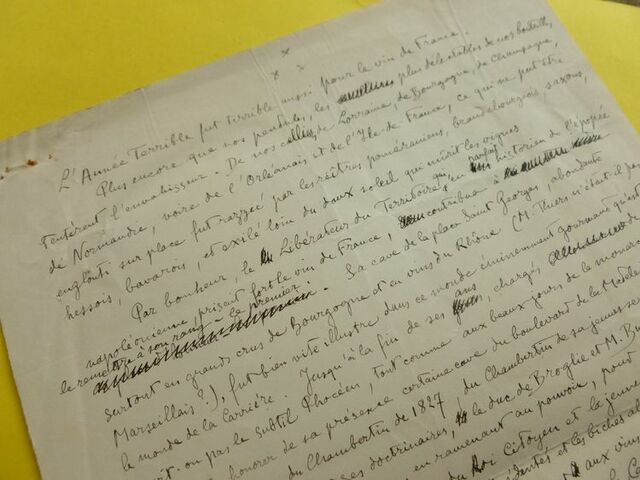 L'Année Terrible fut terrible aussi pour le vin de France.
Plus encore que nos pendules, les plus délectables de nos bouteilles
tentèrent l'envahisseur. De nos celliers de Lorraine, de Bourgogne, de Champagne,
de Normandie, voire de l'Orléanais et de l'Ile de France, ce qui ne put être
englouti sur place fut razzié par les reîtres poméraniens, brandebourgeois, saxons,
hessois, bavarois, et exilé loin du doux soleil qui mûrit les vignes
Par bonheur, le Libérateur du Territoire, qui, en parfait historien de l'épopée
napoléonienne, prisait fort le vin de France, contribua à
le remettre à son rang : le premier. Sa cave de la place Saint Georges, abondante
surtout en grands crus de Bourgogne et en vins du Rhône (M. Thiers n'était-il pas
Marseillais ?), fut bien vite illustre dans ce monde éminemment gourmand qu'est
le monde de la Carrière. Jusqu'à la fin de ses ans, chargés
-on pas le subtil Phocéen, tout comme aux beaux jours de la monar
honorer de sa présence certaine cave du boulevard de la Madel
du Chambertin de 1827, du Chambertin de sa jeunes
doctrinaires, le duc de Broglie et M. B
en ramenant au pouvoir, pour
du Roi Citoyen et la jeun
et les biches
aux vins